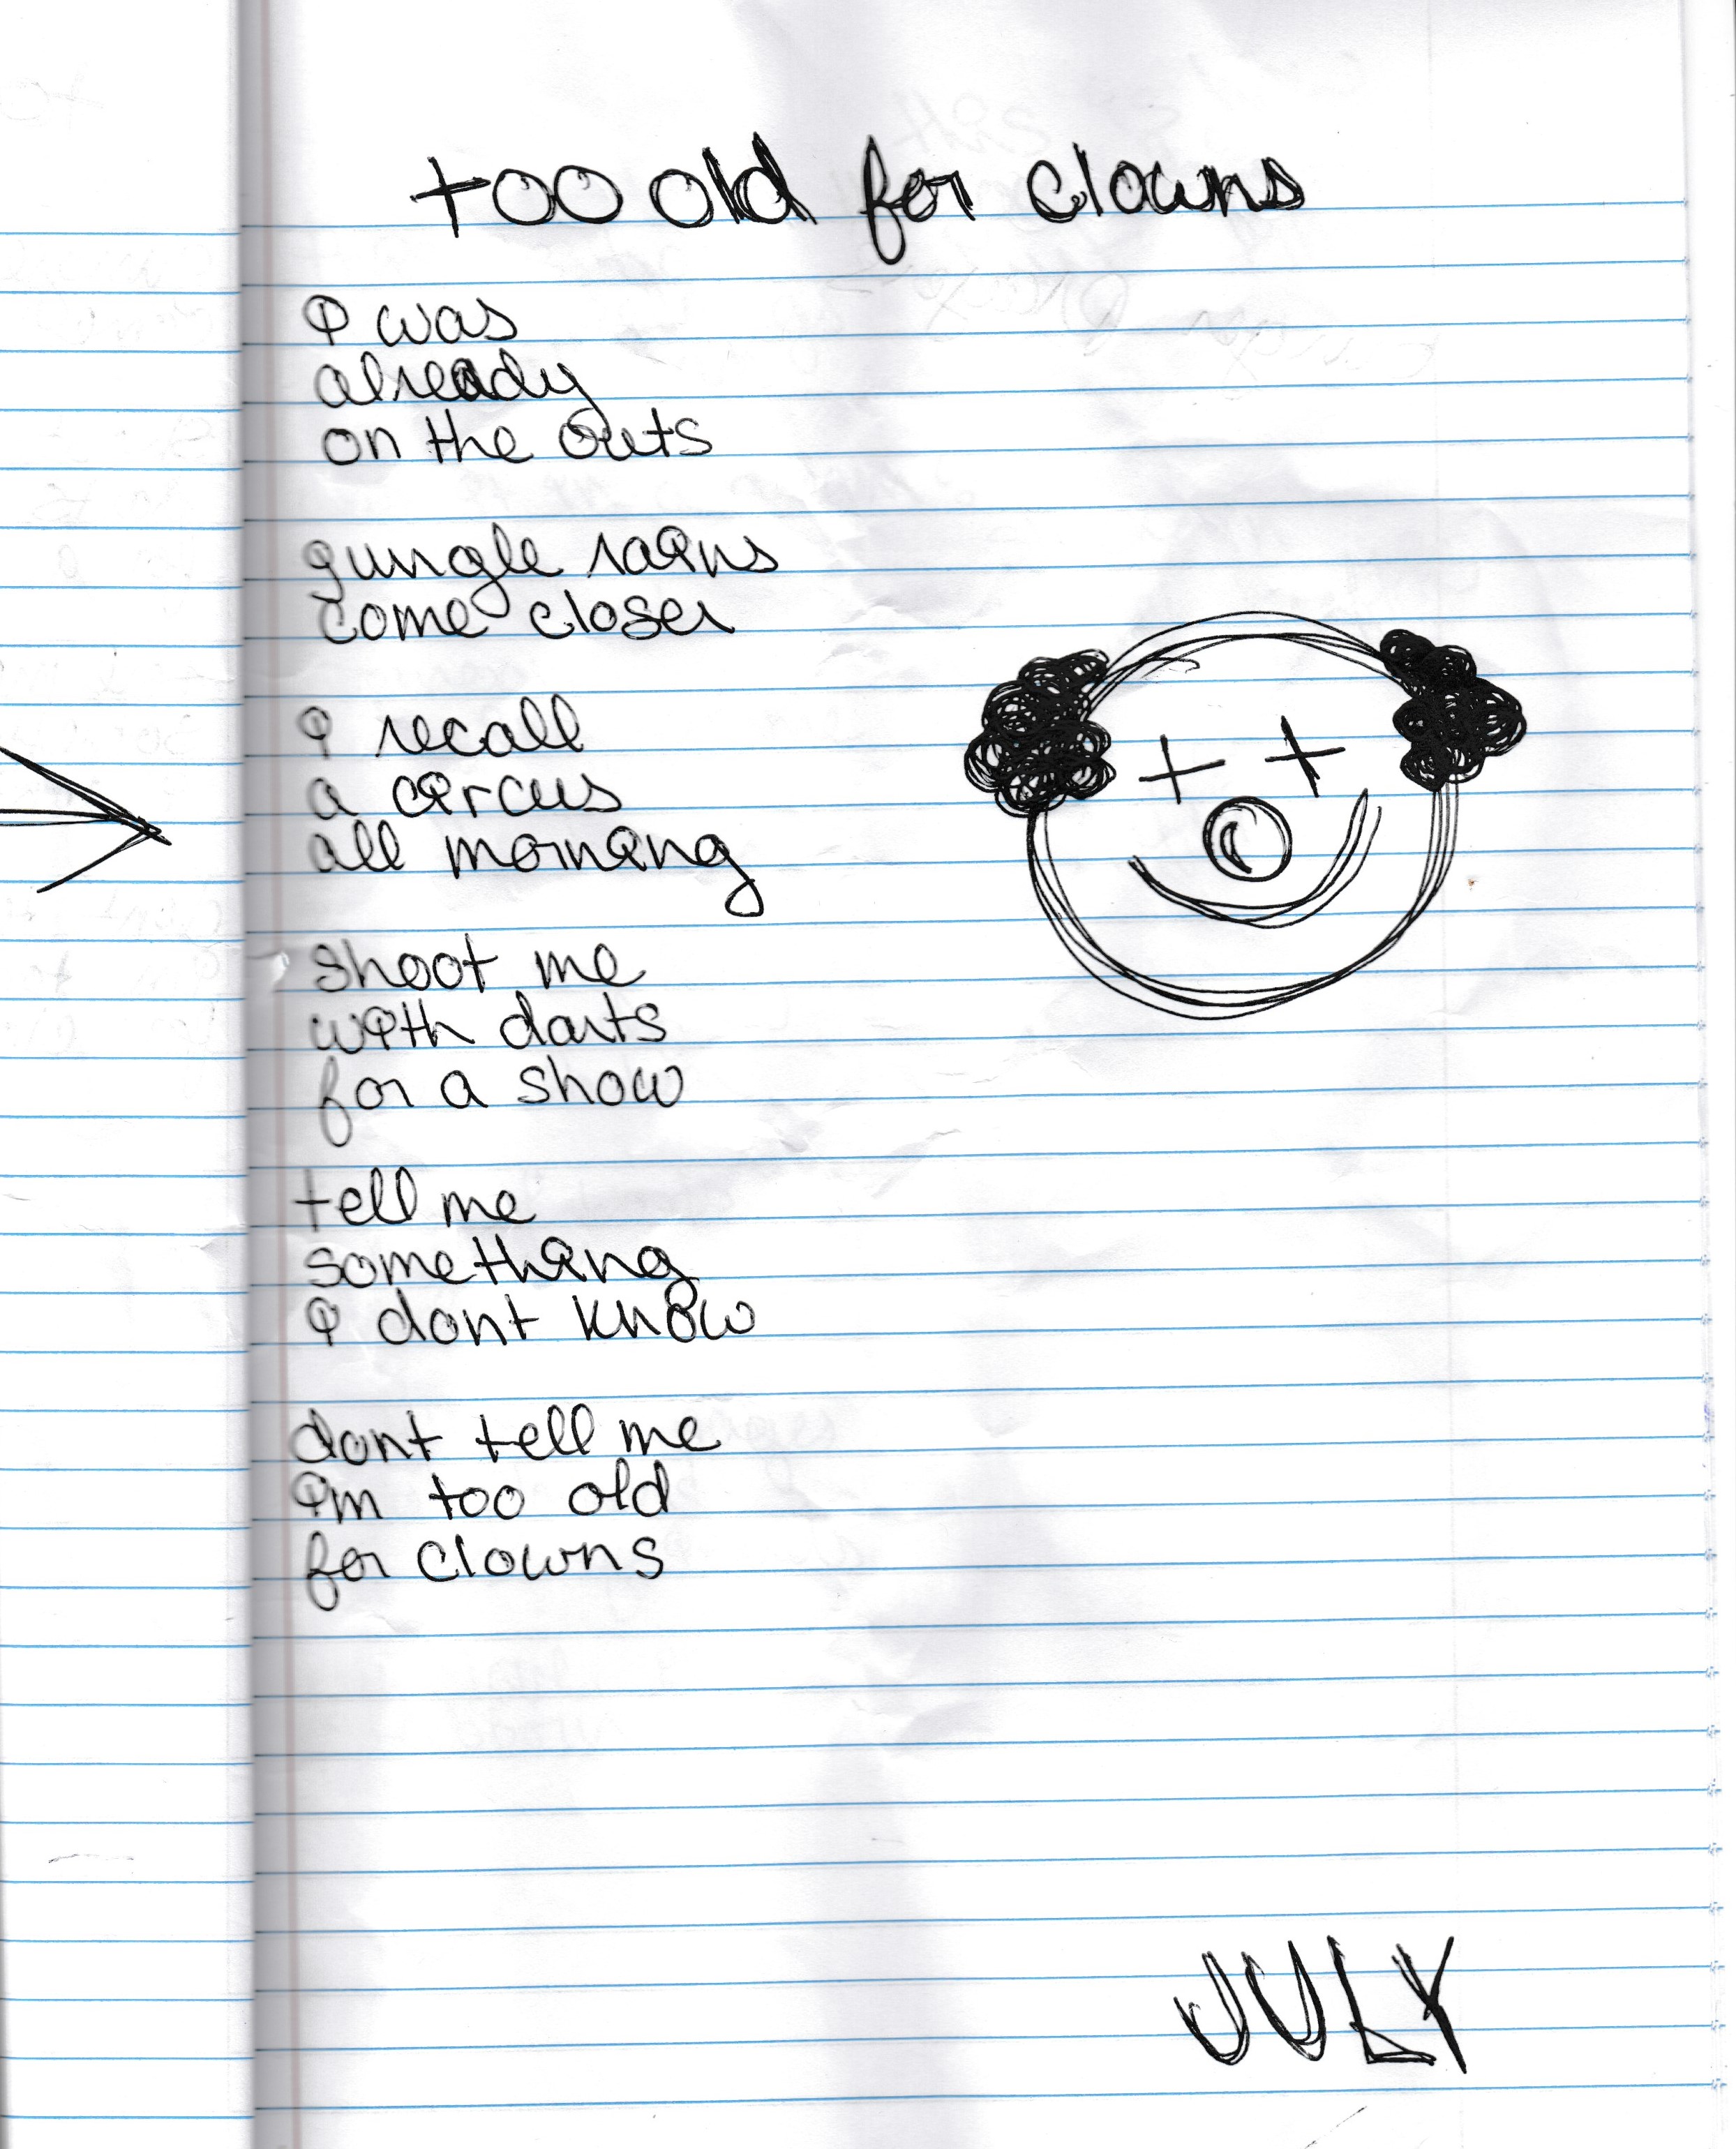 too old for clowns
i was
already
on the outs
jungle rains
come closer
i recall
a circus
all morning
shoot me
with darts
for a show
tell me
something
i dont know
dont tell me
im too old
for clowns
JULY